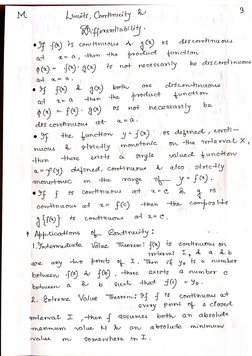 M. Limits, Continuity & 3
Differentiability.
• If f(x) is continuous & g(x) is discontinuous
at x = a, then the product function
φ(x) = f(x)·g(x) is not necessarily be discontinuous
at x = a.
• If f(x) & g(x) both are discontinuous
at x = a then the product function
φ(x) = f(x)·g(x) is not necessarily be
discontinuous at x = a.
• If the function y = f(x) is defined, conti-
nuous & strictly monotonic on the interval X,
then there exists a single valued function
x = φ(y) defined, continuous & also strictly
monotonic in the range of y = f(x).
• If f is continuous at x = c & g is
continuous at x = f(c) then the composite
g{f(x)} is continuous at x = c.
Applications of Continuity:
1. Intermediate Value Theorem: f(x) is continuous on
interval I, & a & b
are any two points of I. Then if y₀ is a number
between f(a) & f(b), there exists a number c
between a & b such that f(c) = y₀.
2. Extreme Value Theorem: If f is continuous at
every point of a closed
interval I, then f assumes both an absolute
maximum value M & an absolute minimum
value m somewhere in I.